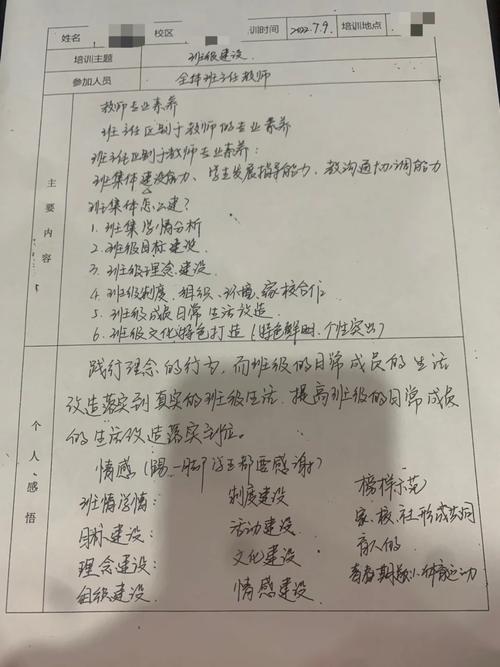 姓名 校区 培训时间 2022.7.9 培训地点
培训主题 班级建设
参加人员 全体班主任教师
主要内容
教师专业素养
班主任区别于教师的专业素养
班主任区别于教师专业素养:
班集体建设能力、学生发展指导能力、教沟通协调能力
班集体怎么建?
1. 班集学情分析
2. 班级目标建设
3. 班级理念建设
4. 班级制度、组织、环境、家校合作
5. 班级成员日常生活改造
6. 班级文化特色打造(特色鲜明、个性突出)
个人感悟
践行理念的行为,而班级的日常成员的生活
改造落实到真实的班级生活,提高班级的日常成员
的生活改造落实到位。
情感(踢一脚 都要感谢)
班情学情: 制度建设 榜样示范
目标建设: 活动建设 家、校、社形成共同
理念建设: 文化建设 育人的
组织建设 情感建设 青春期